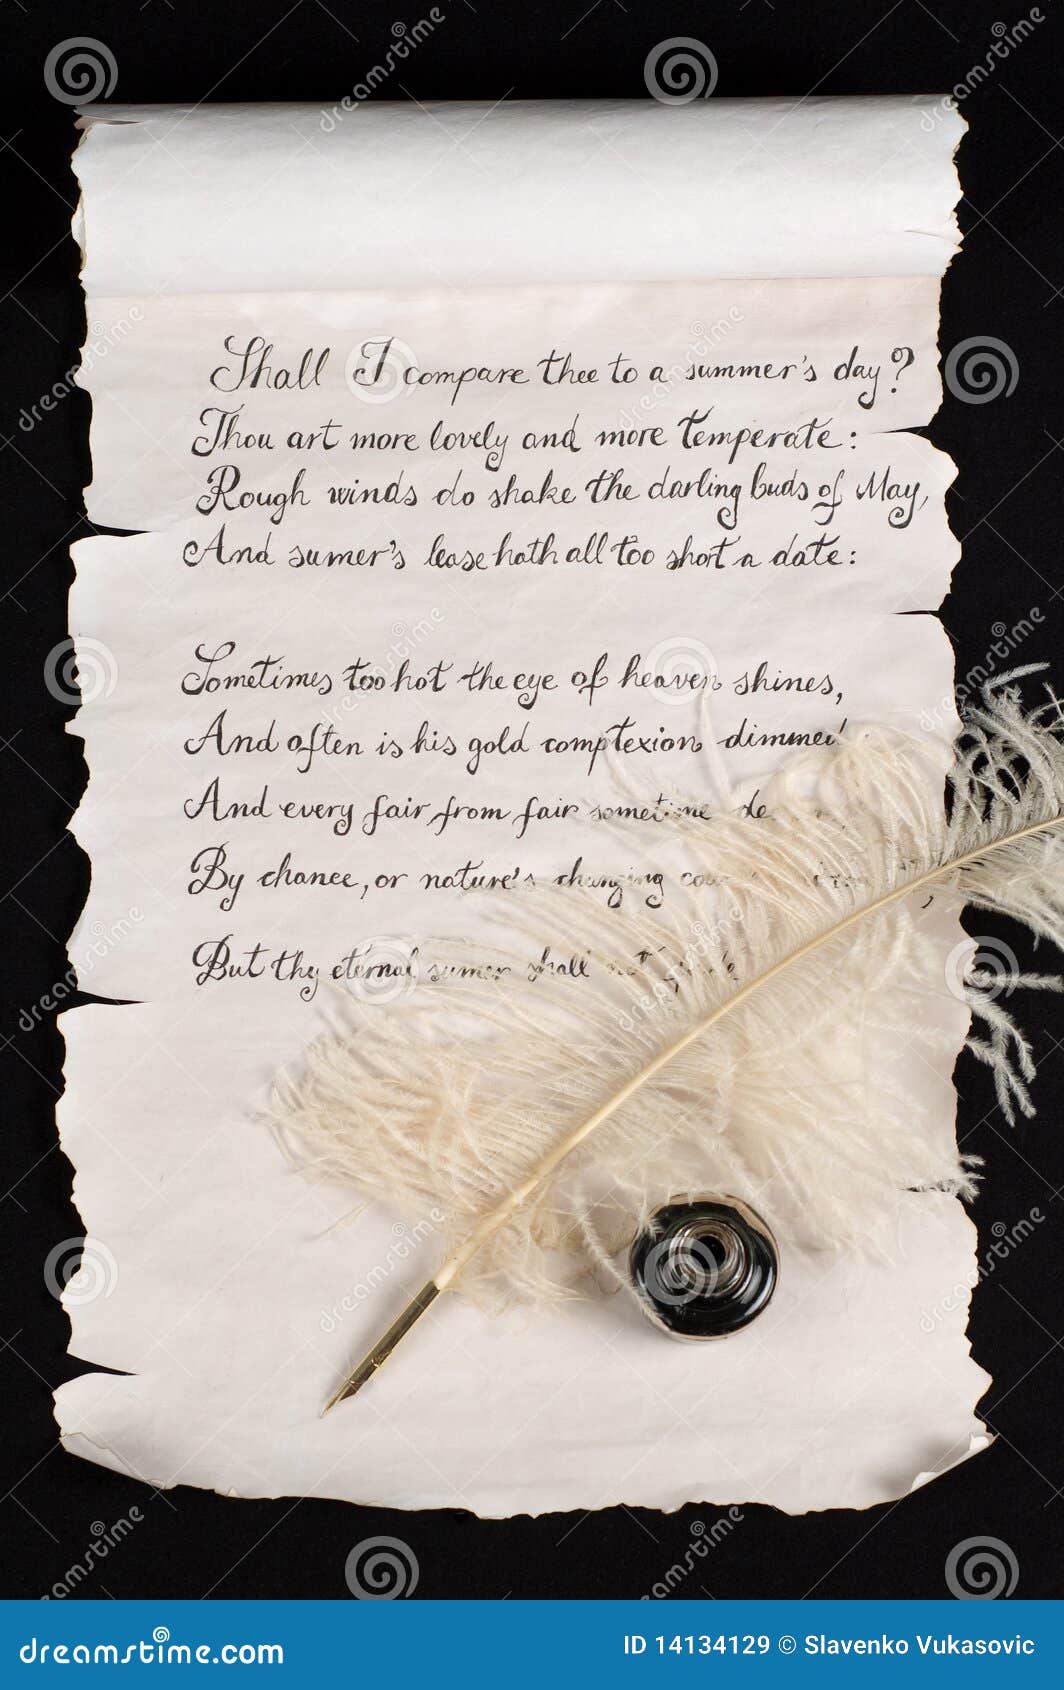 Shall I compare thee to a summer's day?
Thou art more lovely and more temperate:
Rough winds do shake the darling buds of May,
And sumer's lease hath all too short a date:
Sometimes too hot the eye of heaven shines,
And often is his gold comptexion dimmed
And every fair from fair sometime
By chance, or nature's changing
But thy eternal sumer shall not
dreamstime.com
ID 14134129 © Slavenko Vukasovic